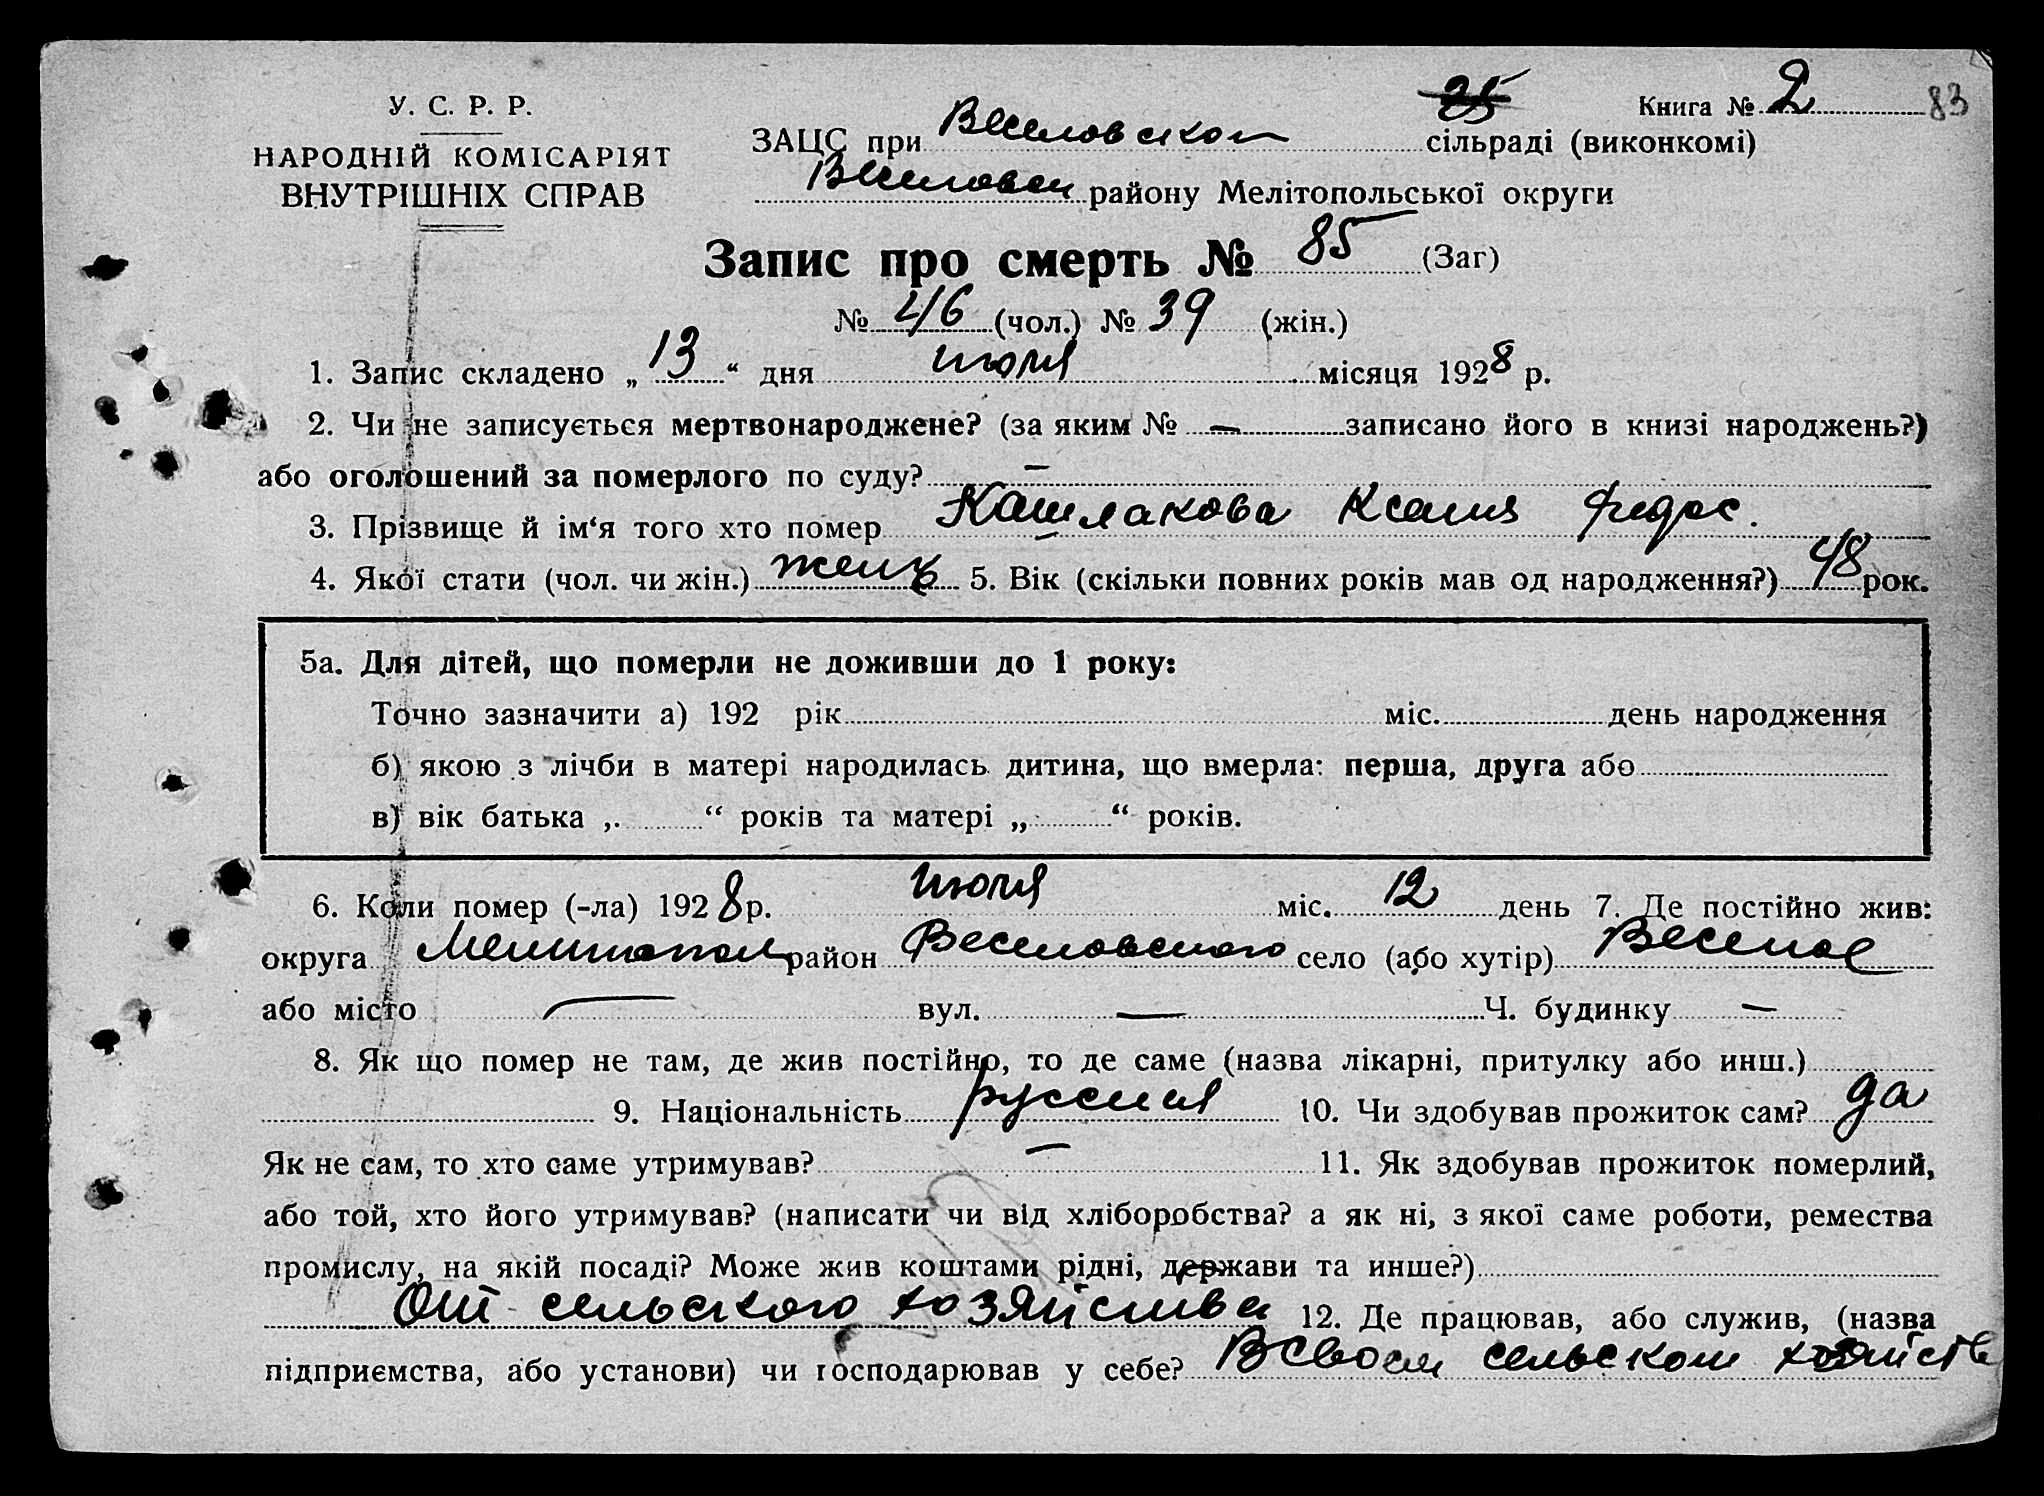 У. С. Р. Р.
НАРОДНІЙ КОМІСАРІЯТ
ВНУТРІШНІХ СПРАВ
Книга № 2 83
ЗАЦС при Веселовском сільраді (виконкомі)
Веселовск району Мелітопольської округи
Запис про смерть № 85 (Заг)
№ 46 (чол.) № 39 (жін.)
1. Запис складено „ 13 “ дня июля місяця 1928 р.
2. Чи не записується мертвонароджене? (за яким № — записано його в книзі народжень?)
або оголошений за померлого по суду? —
3. Прізвище й ім‘я того хто помер Кашлакова Ксения Федос.
4. Якої стати (чол. чи жін.) женс 5. Вік (скільки повних років мав од народження?) 48 рок.
5а. Для дітей, що померли не доживши до 1 року:
Точно зазначити а) 192 рік міс. день народження
б) якою з лічби в матері народилась дитина, що вмерла: перша, друга або
в) вік батька „ “ років та матері „ “ років.
6. Коли помер (-ла) 1928 р. июля міс. 12 день 7. Де постійно жив:
округа Мелитопол район Веселовского село (або хутір) Веселое
або місто — вул. — Ч. будинку —
8. Як що помер не там, де жив постійно, то де саме (назва лікарні, притулку або инш.)
9. Національність русская 10. Чи здобував прожиток сам? да
Як не сам, то хто саме утримував? — 11. Як здобував прожиток померлий,
або той, хто його утримував? (написати чи від хліборобства? а як ні, з якої саме роботи, ремества
промислу, на якій посаді? Може жив коштами рідні, держави та инше?)
От сельского хозяйства 12. Де працював, або служив, (назва
підприємства, або установи) чи господарював у себе? В своем сельском хозяйств